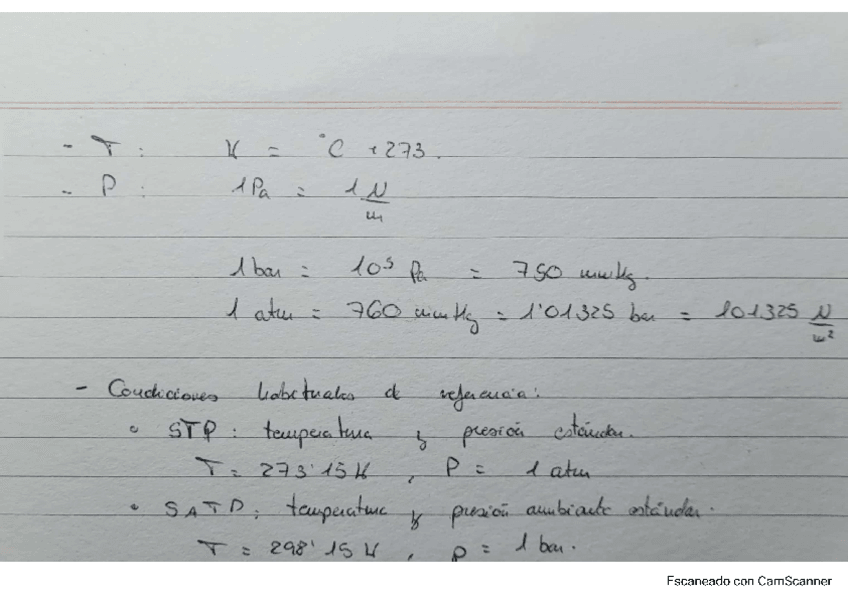 - T : K = °C + 273.
- P : 1 Pa = 1 N/m
1 bar = 10⁵ Pa = 750 mmHg.
1 atm = 760 mmHg = 1'01325 bar = 101325 N/m²
- Condiciones habituales de referencia:
• STP : temperatura y presión estándar.
T = 273'15 K , P = 1 atm
• SATP : temperatura y presión ambiente estándar.
T = 298'15 K , P = 1 bar.
Escaneado con CamScanner